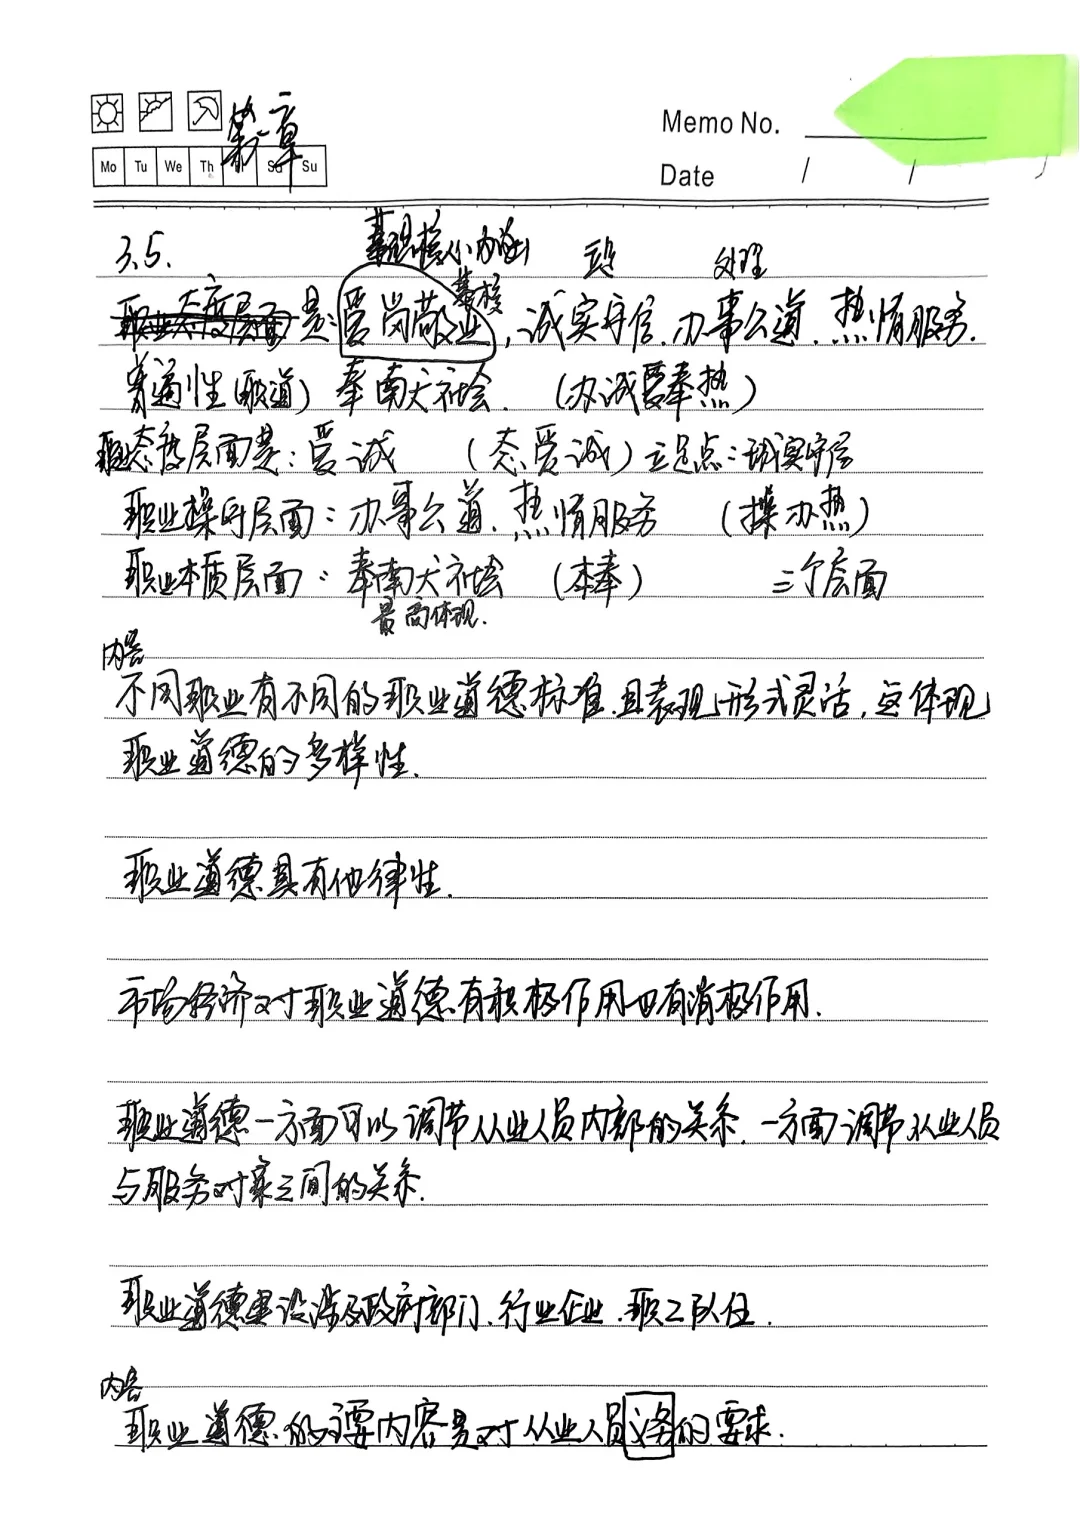 第一章
Memo No.
Mo Tu We Th Fr Sa Su
Date / /
3.5.
处理
职业态度层面是:爱岗敬业,诚实守信.办事公道.热情服务.
基核
普遍性(职道) 奉南犬社会. (办诚爱奉热)
职业态度层面是:爱诚 (态爱诚)立足点:诚实守信
职业操守层面:办事公道.热情服务 (操办热)
职业本质层面:奉南犬社会 (本奉) 三个层面
最高体现.
内容
不同职业有不同的职业道德标准.且表现形式灵活,这体现
职业道德的多样性.
职业道德具有他律性.
市场经济对职业道德有积极作用也有消极作用.
职业道德一方面可以调节从业人员内部的关系.一方面调节从业人员
与服务对象之间的关系.
职业道德建设涉及政府部门.行业企业.职工队伍.
内容
职业道德的主要内容是对从业人员义务的要求.